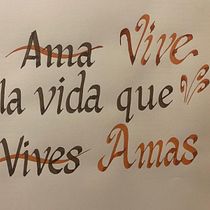 Ama Vive
la vida que
Vives Amas